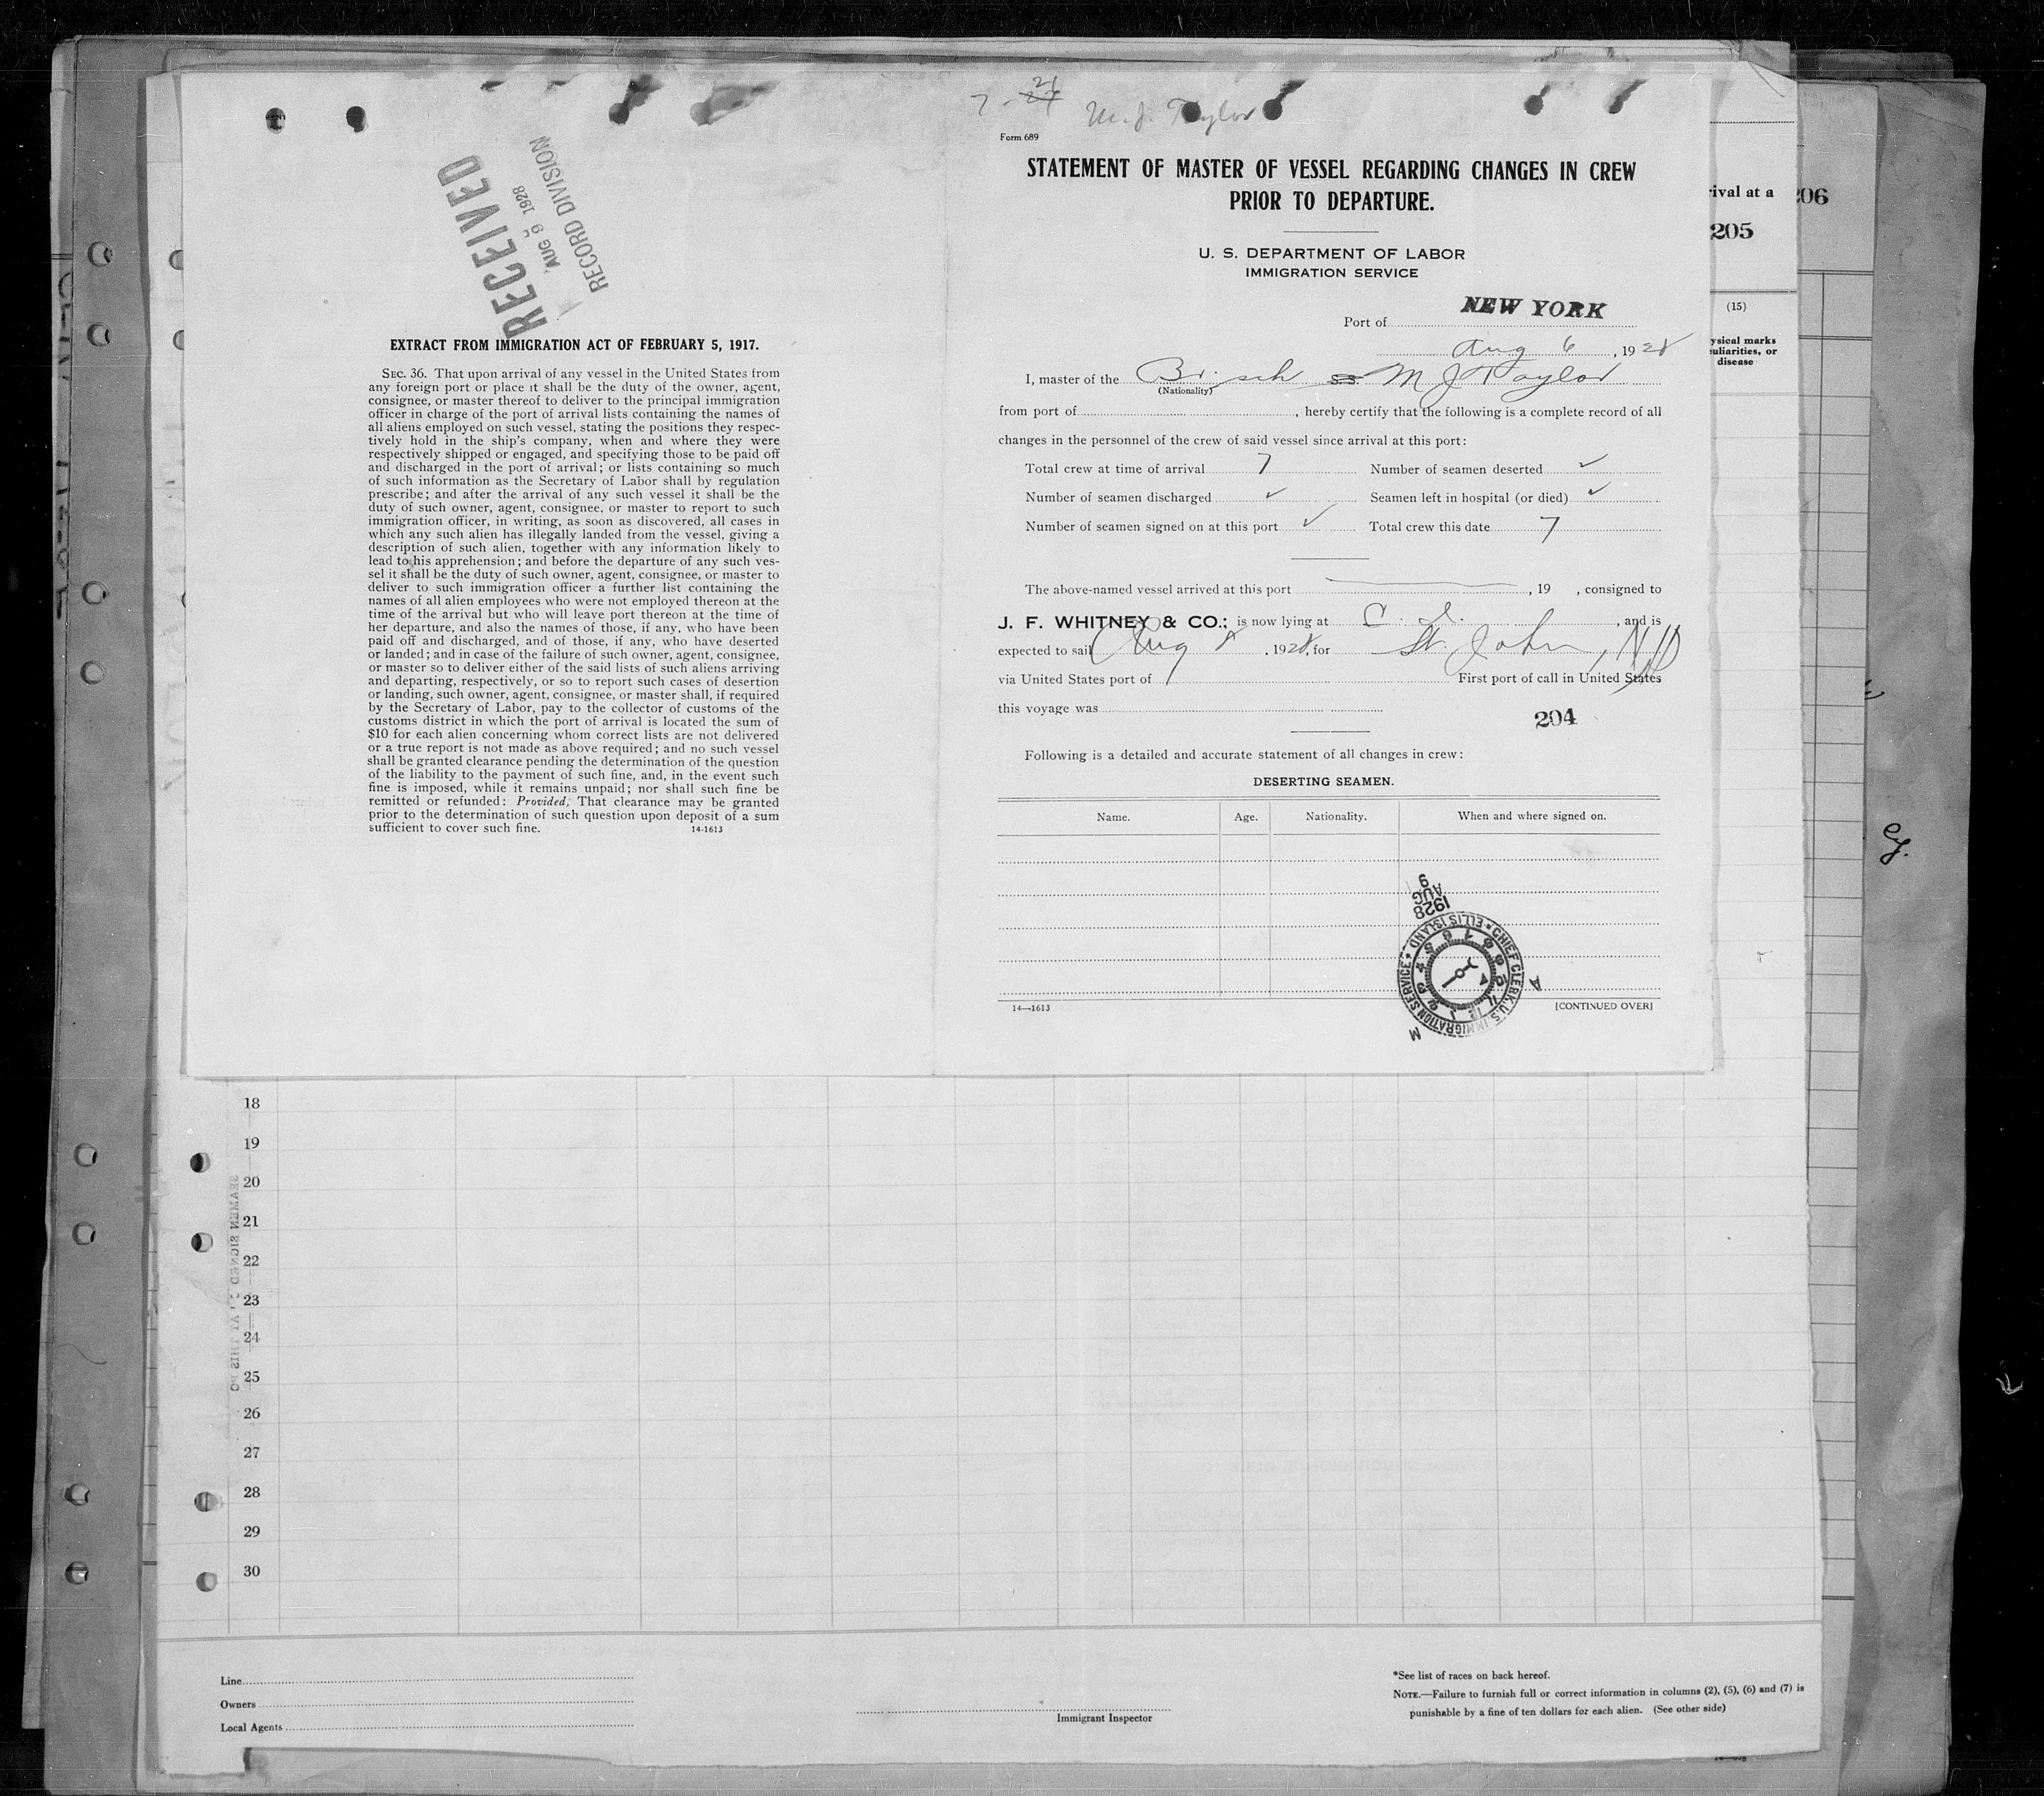 RECEIVED
AUG 9 1928
RECORD DIVISION
EXTRACT FROM IMMIGRATION ACT OF FEBRUARY 5, 1917.
SEC. 36. That upon arrival of any vessel in the United States from
any foreign port or place it shall be the duty of the owner, agent,
consignee, or master thereof to deliver to the principal immigration
officer in charge of the port of arrival lists containing the names of
all aliens employed on such vessel, stating the positions they respec-
tively hold in the ship's company, when and where they were
respectively shipped or engaged, and specifying those to be paid off
and discharged in the port of arrival; or lists containing so much
of such information as the Secretary of Labor shall by regulation
prescribe; and after the arrival of any such vessel it shall be the
duty of such owner, agent, consignee, or master to report to such
immigration officer, in writing, as soon as discovered, all cases in
which any such alien has illegally landed from the vessel, giving a
description of such alien, together with any information likely to
lead to his apprehension; and before the departure of any such ves-
sel it shall be the duty of such owner, agent, consignee, or master to
deliver to such immigration officer a further list containing the
names of all alien employees who were not employed thereon at the
time of the arrival but who will leave port thereon at the time of
her departure, and also the names of those, if any, who have been
paid off and discharged, and of those, if any, who have deserted
or landed; and in case of the failure of such owner, agent, consignee,
or master so to deliver either of the said lists of such aliens arriving
and departing, respectively, or so to report such cases of desertion
or landing, such owner, agent, consignee, or master shall, if required
by the Secretary of Labor, pay to the collector of customs of the
customs district in which the port of arrival is located the sum of
$10 for each alien concerning whom correct lists are not delivered
or a true report is not made as above required; and no such vessel
shall be granted clearance pending the determination of the question
of the liability to the payment of such fine, and, in the event such
fine is imposed, while it remains unpaid; nor shall such fine be
remitted or refunded: Provided, That clearance may be granted
prior to the determination of such question upon deposit of a sum
sufficient to cover such fine. 14-1613
M. J. Taylor
Form 689
STATEMENT OF MASTER OF VESSEL REGARDING CHANGES IN CREW
PRIOR TO DEPARTURE.
U. S. DEPARTMENT OF LABOR
IMMIGRATION SERVICE
Port of NEW YORK
Aug 6, 1928
I, master of the Br. sch ss. M J Taylor
(Nationality)
from port of , hereby certify that the following is a complete record of all
changes in the personnel of the crew of said vessel since arrival at this port:
Total crew at time of arrival 7 Number of seamen deserted ✓
Number of seamen discharged ✓ Seamen left in hospital (or died) ✓
Number of seamen signed on at this port ✓ Total crew this date 7
The above-named vessel arrived at this port , 19 , consigned to
J. F. WHITNEY & CO.; is now lying at C. I. , and is
expected to sail Aug 8, 1928, for St. John, NB
via United States port of First port of call in United States
this voyage was
204
Following is a detailed and accurate statement of all changes in crew:
DESERTING SEAMEN.
Name. Age. Nationality. When and where signed on.
9
AUG
1928
CHIEF CLERK, U.S. IMMIGRATION SERVICE ELLIS ISLAND
14—1613 [CONTINUED OVER]
rival at a
205
206
(15)
ysical marks
uliarities, or
disease
18
19
20
21
22
23
24
25
26
27
28
29
30
Line
Owners
Local Agents
Immigrant Inspector
*See list of races on back hereof.
NOTE.—Failure to furnish full or correct information in columns (2), (5), (6) and (7) is
punishable by a fine of ten dollars for each alien. (See other side)